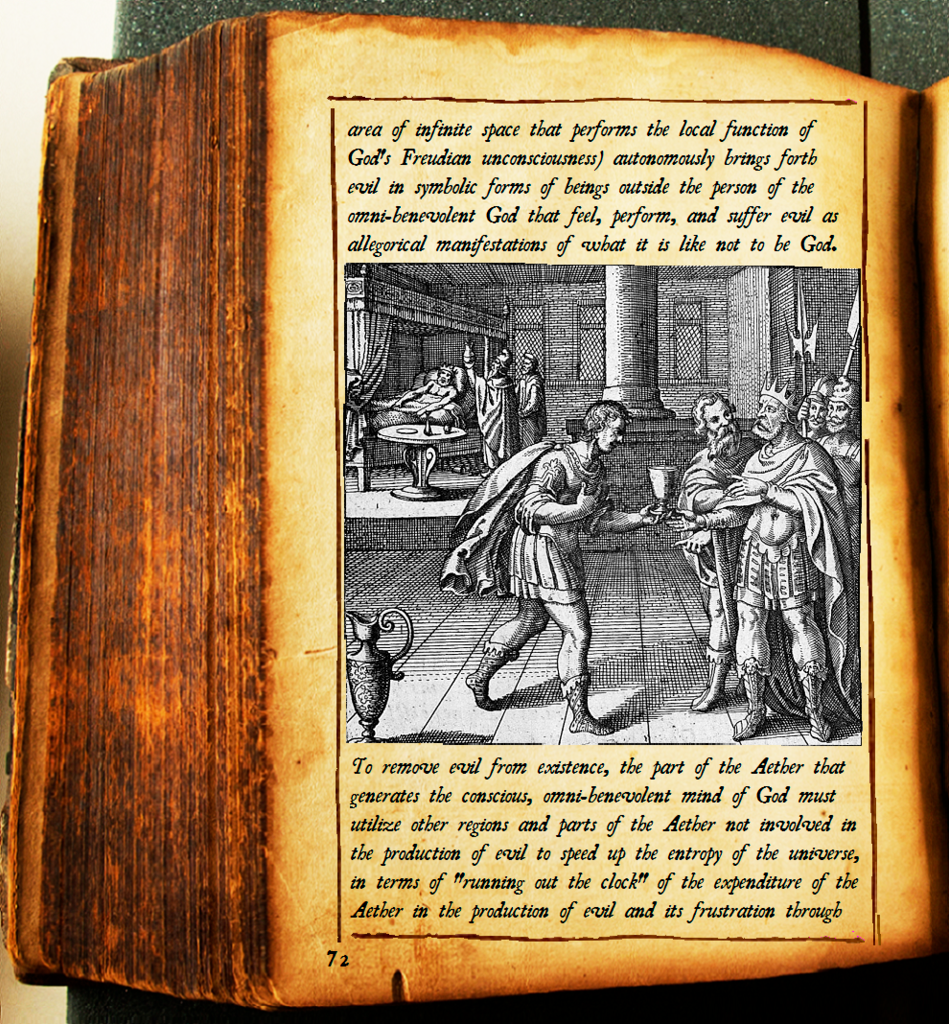 area of infinite space that performs the local function of
God's Freudian unconsciousness) autonomously brings forth
evil in symbolic forms of beings outside the person of the
omni-benevolent God that feel, perform, and suffer evil as
allegorical manifestations of what it is like not to be God.
To remove evil from existence, the part of the Aether that
generates the conscious, omni-benevolent mind of God must
utilize other regions and parts of the Aether not involved in
the production of evil to speed up the entropy of the universe,
in terms of "running out the clock" of the expenditure of the
Aether in the production of evil and its frustration through
72